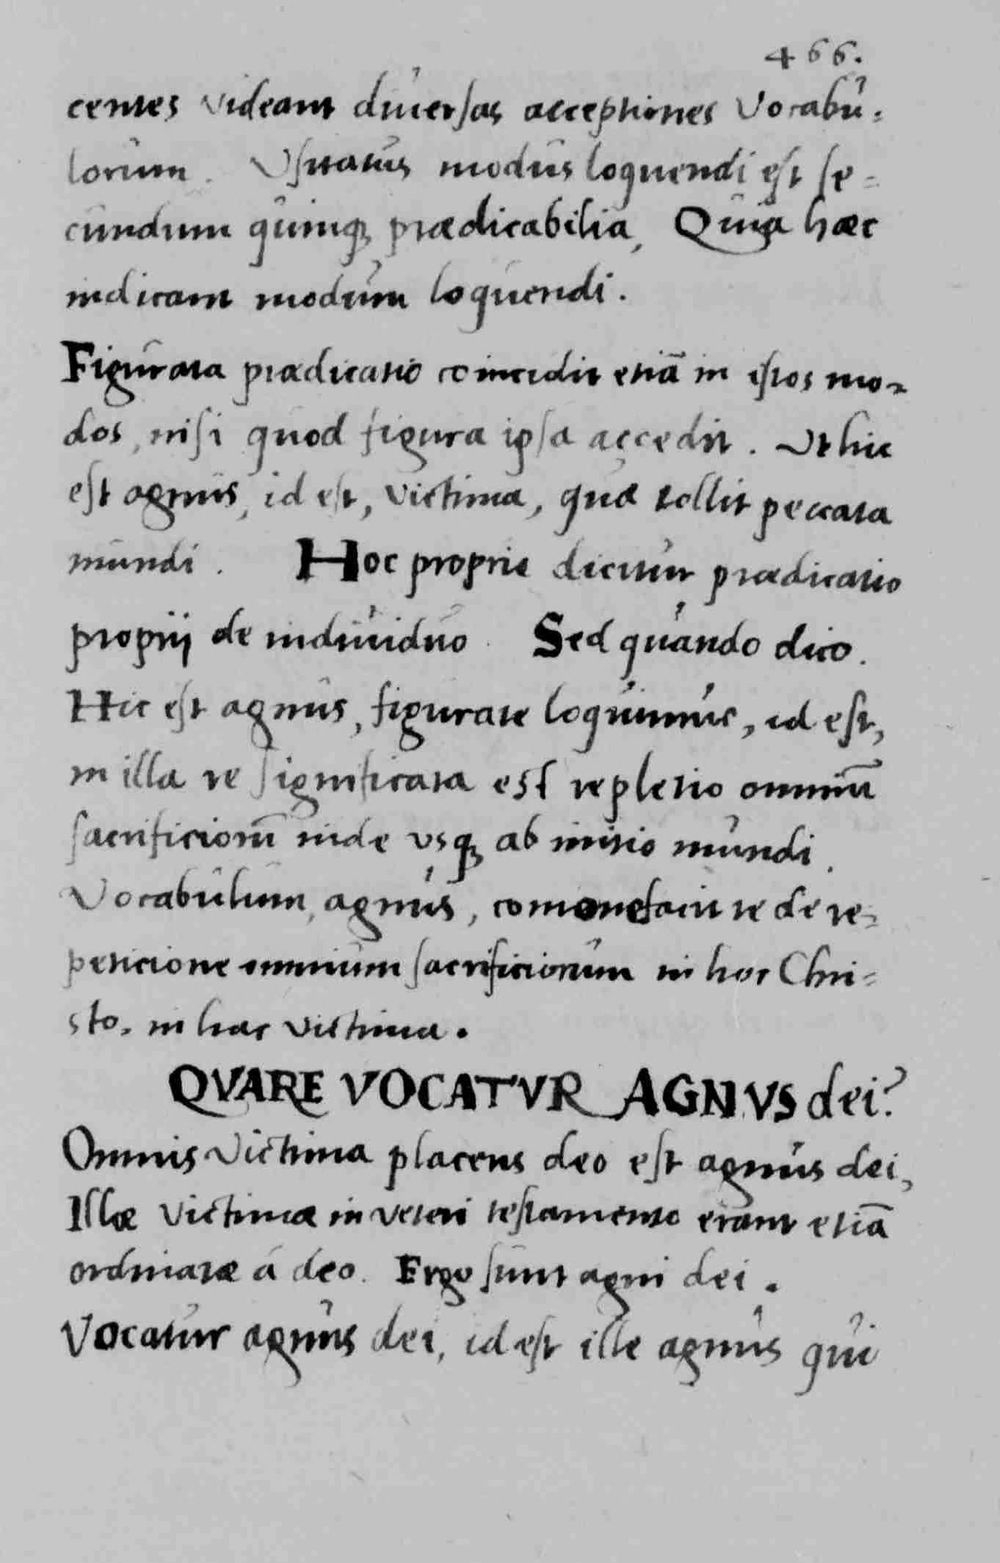 466.
centes videant diuersas acceptiones Vocabu=
lorum. Vsitatus modus loquendi est se=
cundum quinqȝ prædicabilia, Quia hæc
indicant modum loquendi.
Figurata prædicatio coincidit etiā in istos mo=
dos, nisi quod figura ipsa accedit. Vt hic
est agnus, id est, victima, quæ tollit peccata
mundi. Hoc proprie dicitur prædicatio
proprij de indiuiduo. Sed quando dico.
Hic est agnus, figurate loquimur, id est,
in illa re significata est repletio omniū
sacrificiorū inde vsqȝ ab initio mundi.
Vocabulum, agnus, comonefacit te de re=
peticione omnium sacrificiorum in hoc Chri=
sto, in hac victima.
QVARE VOCATVR AGNVS dei?
Omnis Victima placens deo est agnus dei,
Illæ victimæ in veteri testamento erant etiā
ordinatæ á deo. Ergo sunt agni dei.
Vocatur agnus dei, id est ille agnus qui